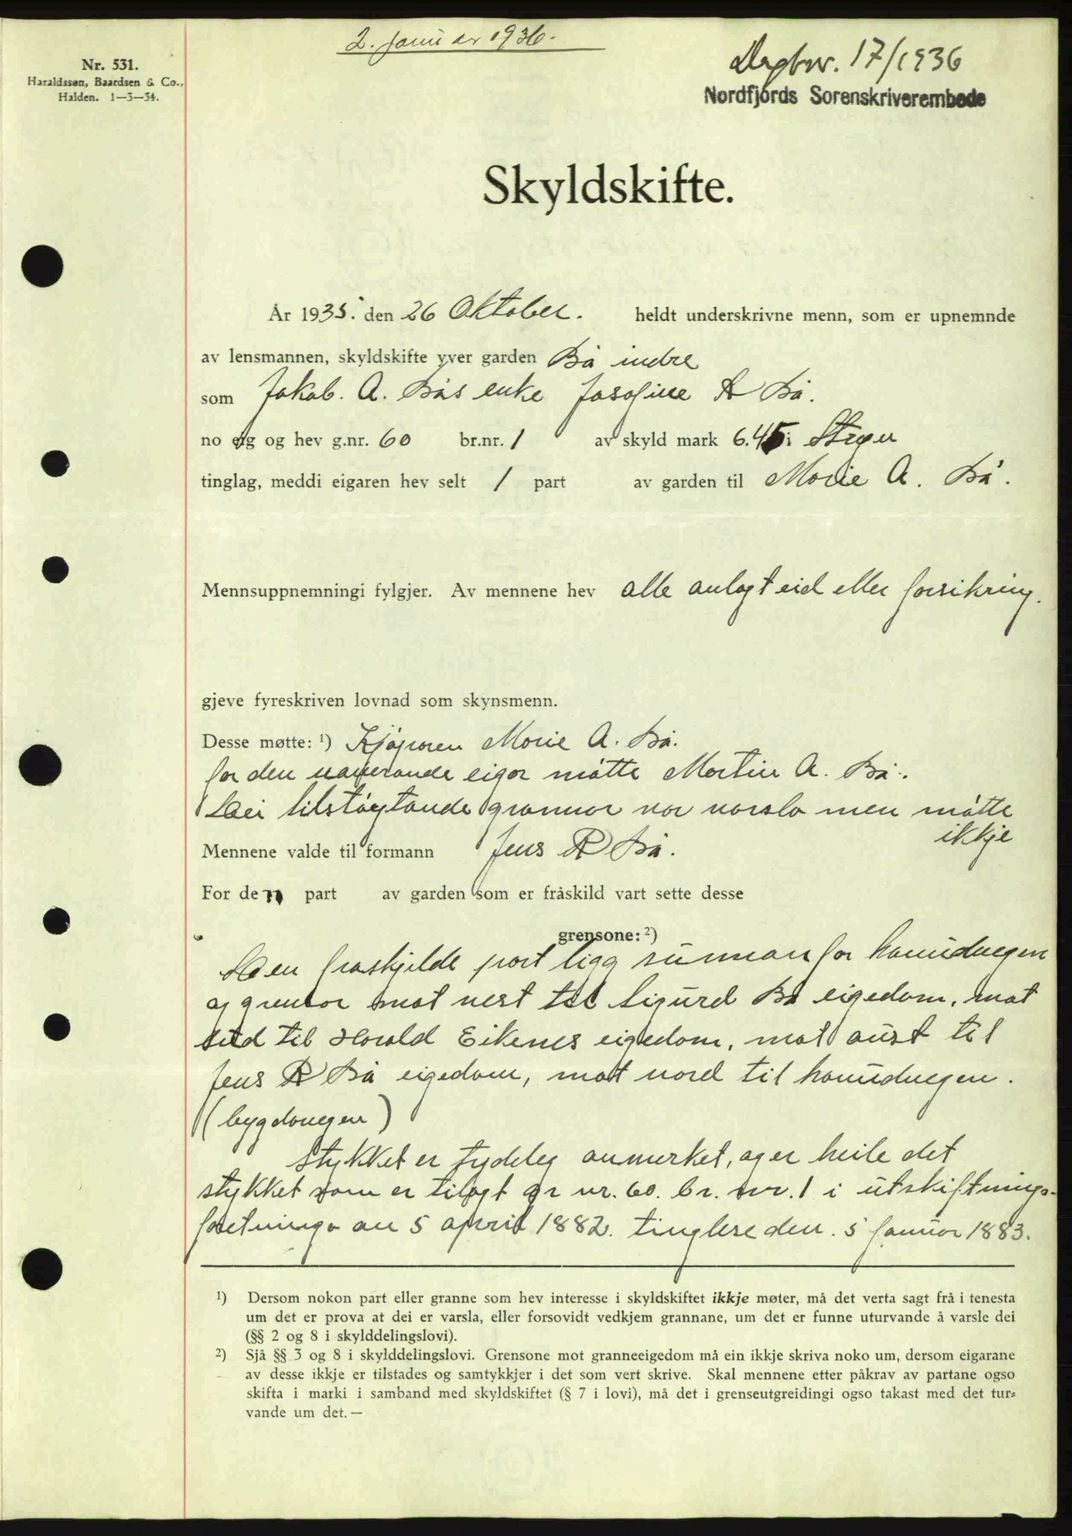 2. Januar 1936.
Nr. 531.
Haraldssøn, Baardsen & Co.,
Halden. 1—3—34.
Dagbnr. 17/1936
Nordfjords Sorenskriverembede
Skyldskifte.
År 1935. den 26 Oktober. heldt underskrivne menn, som er upnemnde
av lensmannen, skyldskifte yver garden Bå indre
som Jakob. A. Bås enke Josofine R Bå.
no eig og hev g.nr. 60 br.nr. 1 av skyld mark 6.45 i Stryn
tinglag, meddi eigaren hev selt 1 part av garden til Marie A. Bå.
Mennsuppnemningi fylgjer. Av mennene hev alle avlagt eid eller forsikring.
gjeve fyreskriven lovnad som skynsmenn.
Desse møtte: ¹) Kjøparen Marie A. Bå.
for den naverande eigar møtte Martin A. Bå.
Dei tilstøytande grannar var varsla men møtte
ikkje
Mennene valde til formann Jens R Bå.
For den part av garden som er fråskild vart sette desse
grensone: ²)
Den fraskjilde part ligg sunnan for hovudvegen
og grensar mot vest til Sigurd Bå eigedom, mot
sud til Harald Eikenes eigedom, mot aust til
Jens R Bå eigedom, mot nord til hovudvegen.
(bygdavegen)
Stykket er tydeleg avmerket, og er heile det
stykket som er tilagt gr nr. 60. br. nr. 1 i utskiftnings-
foretninga av 5 april 1882. tinglese den. 5 Januar 1883.
¹) Dersom nokon part eller granne som hev interesse i skyldskiftet ikkje møter, må det verta sagt frå i tenesta
um det er prova at dei er varsla, eller forsovidt vedkjem grannane, um det er funne uturvande å varsle dei
(§§ 2 og 8 i skylddelingslovi).
²) Sjå §§ 3 og 8 i skylddelingslovi. Grensone mot granneeigedom må ein ikkje skriva noko um, dersom eigarane
av desse ikkje er tilstades og samtykkjer i det som vert skrive. Skal mennene etter påkrav av partane ogso
skifta i marki i samband med skyldskiftet (§ 7 i lovi), må det i grenseutgreidingi ogso takast med det tur-
vande um det. —